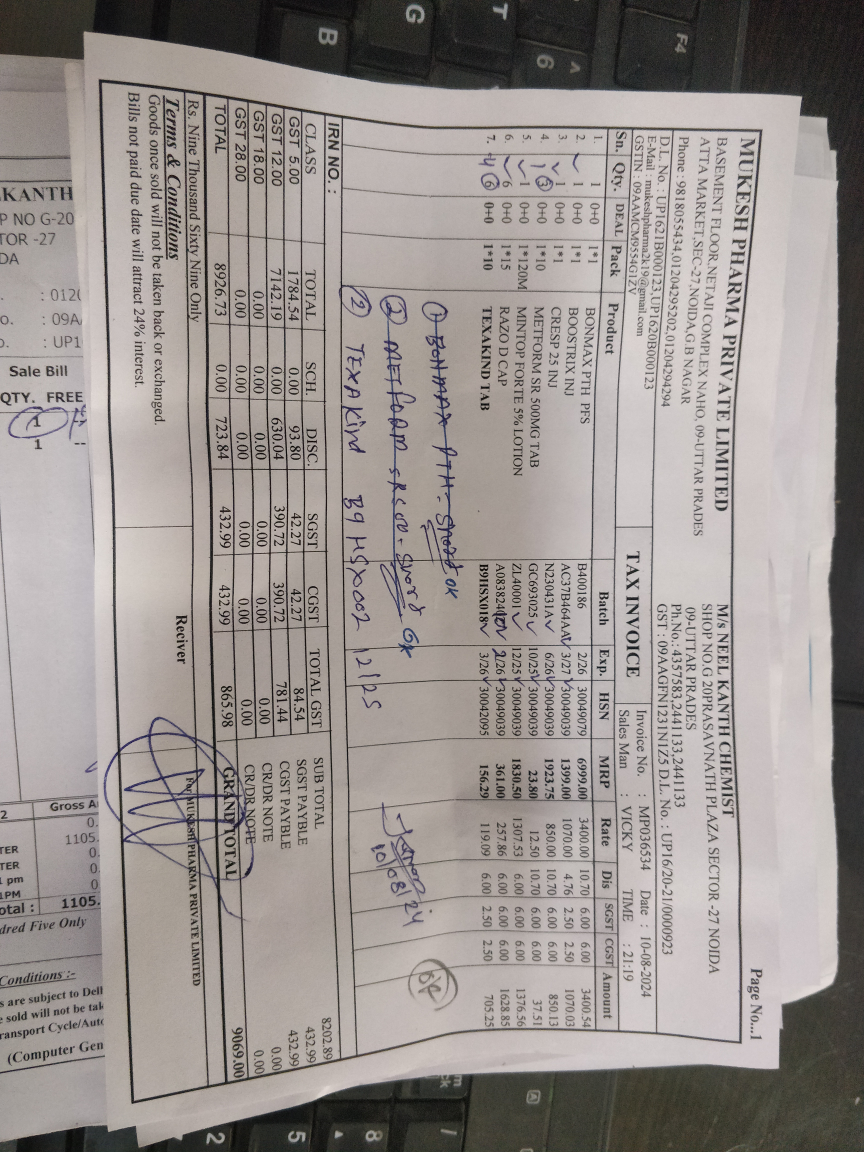 Page No...1
MUKESH PHARMA PRIVATE LIMITED
BASEMENT FLOOR,NETAJI COMPLEX NAHO, 09-UTTAR PRADES
ATTA MARKET,SEC-27,NOIDA,G B NAGAR
Phone : 9818055434,01204295202,01204294294
D.L. No. : UP1621B000123,UP1620B000123
E-Mail : mukeshpharma2k19@gmail.com
GSTIN : 09AAMCM9554G1ZV
TAX INVOICE
M/s NEEL KANTH CHEMIST
SHOP NO.G 20PRASAVNATH PLAZA SECTOR -27 NOIDA
09-UTTAR PRADES
Ph.No.: 4357583,2441133,2441133
GST : 09AAGFN1231N1Z5 D.L. No. : UP16/20-21/0000923
Invoice No. : MP036534 Date : 10-08-2024
Sales Man : VICKY TIME : 21:19
Sn. Qty. DEAL Pack Product Batch Exp. HSN MRP Rate Dis SGST CGST Amount
1. 1 0+0 1*1 BONMAX PTH PFS B400186 2/26 30049079 6999.00 3400.00 10.70 6.00 6.00 3400.54
2. 1 0+0 1*1 BOOSTRIX INJ AC37B464AA 3/27 30049039 1399.00 1070.00 4.76 2.50 2.50 1070.03
3. 1 0+0 1*1 CRESP 25 INJ N230431A 6/26 30049039 1923.75 850.00 10.70 6.00 6.00 850.13
4. 3 0+0 1*10 METFORM SR 500MG TAB GC693025 10/25 30049039 23.80 12.50 10.70 6.00 6.00 37.51
5. 1 0+0 1*120M MINTOP FORTE 5% LOTION ZL40001 12/25 30049039 1830.50 1307.53 6.00 6.00 6.00 1376.56
6. 6 0+0 1*15 RAZO D CAP 2/26 30049039 361.00 257.86 6.00 6.00 6.00 1628.85
7. 4 6 0+0 1*10 TEXAKIND TAB B9HSX018 3/26 30042095 156.29 119.09 6.00 2.50 2.50 705.25
① BONMAX PTH - Short OK
② METFORM SR500 - Short OK
② TEXAKIND B9HSX002 12/25
10/08/24
IRN NO. :
CLASS TOTAL SCH. DISC. SGST CGST TOTAL GST
GST 5.00 1784.54 0.00 93.80 42.27 42.27 84.54
GST 12.00 7142.19 0.00 630.04 390.72 390.72 781.44
GST 18.00 0.00 0.00 0.00 0.00 0.00 0.00
GST 28.00 0.00 0.00 0.00 0.00 0.00 0.00
TOTAL 8926.73 0.00 723.84 432.99 432.99 865.98
SUB TOTAL 8202.89
SGST PAYBLE 432.99
CGST PAYBLE 432.99
CR/DR NOTE 0.00
CR/DR NOTE 0.00
GRAND TOTAL 9069.00
Rs. Nine Thousand Sixty Nine Only
Terms & Conditions
Goods once sold will not be taken back or exchanged.
Bills not paid due date will attract 24% interest.
Reciver
For MUKESH PHARMA PRIVATE LIMITED
KANTH
P NO G-20
TOR -27
DA
: 0120
o. : 09A
o. : UP1
Sale Bill
QTY. FREE
1
1 --
2 Gross A
0.
1105.
TER 0.
TER 0.
1 pm 0
1PM
otal : 1105.
dred Five Only
Conditions :-
s are subject to Delh
sold will not be tak
ransport Cycle/Auto
(Computer Gen
F4
T
G
B
^
6
2
5
8